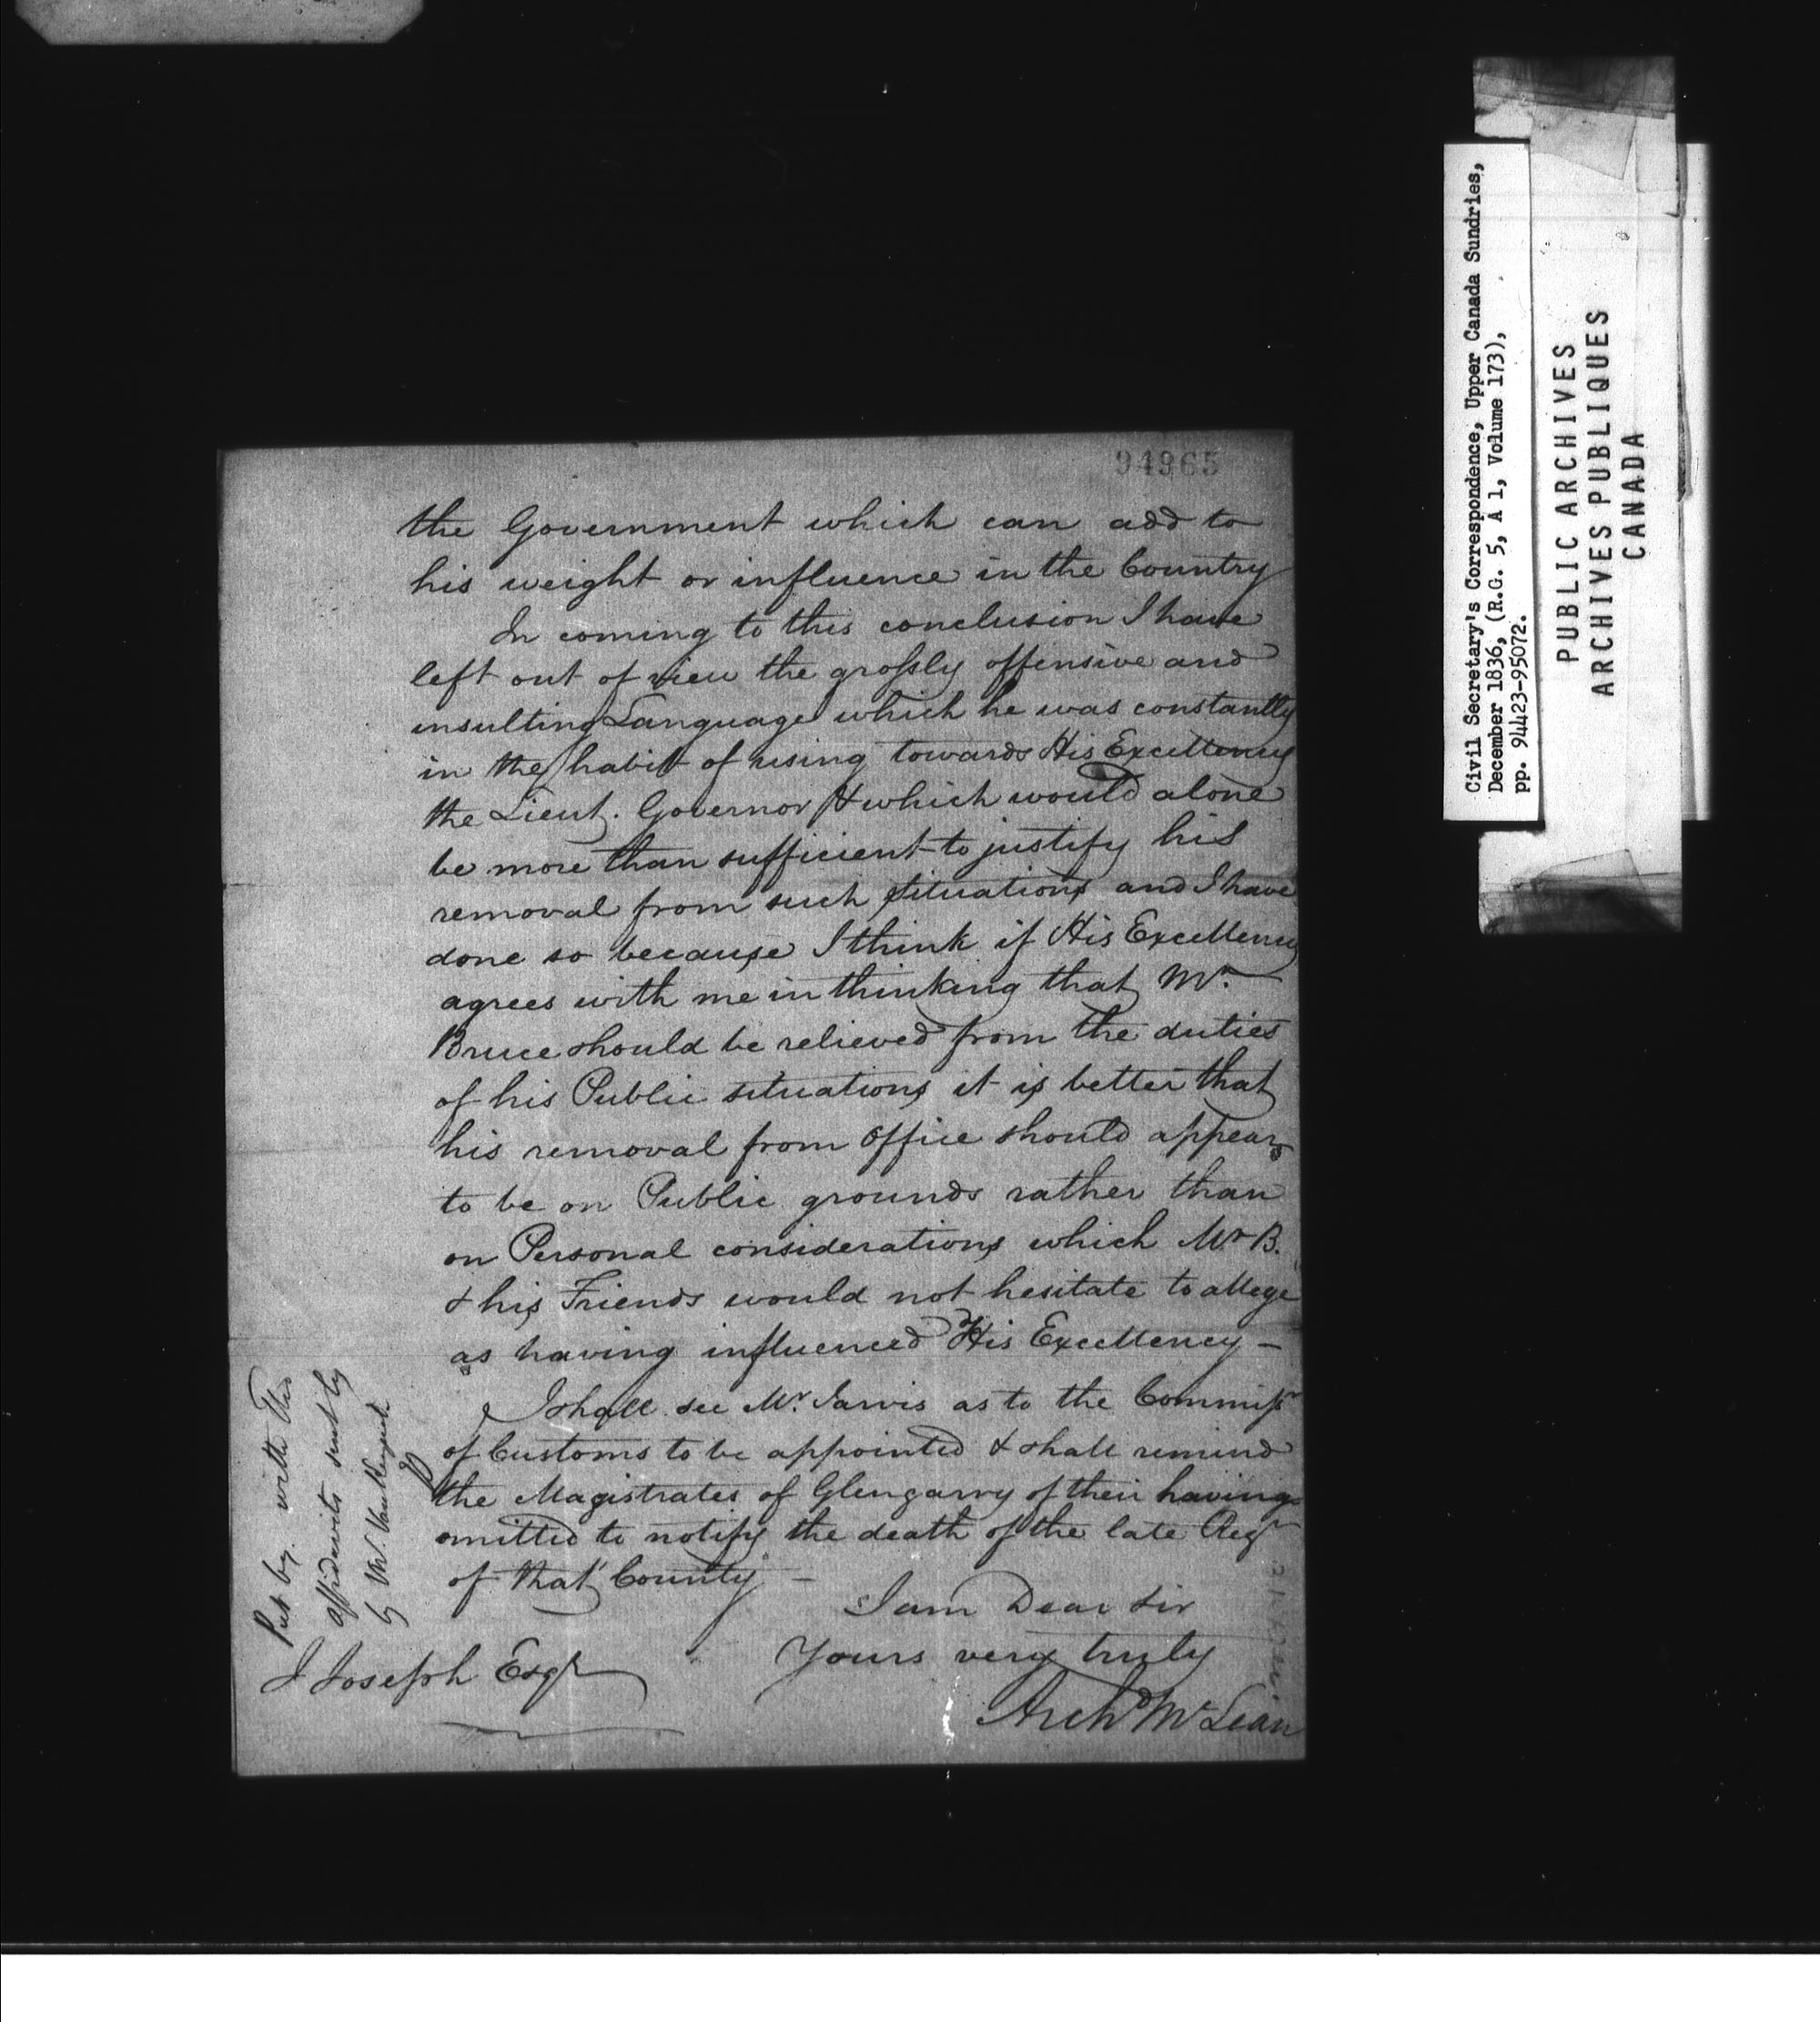 94965
the Government which can add to
his weight or influence in the Country
In coming to this conclusion I have
left out of view the grossly offensive and
insulting Language which he was constantly
in the habit of using towards His Excellency
the Lieut. Governor & which would alone
be more than sufficient to justify his
removal from such situations and I have
done so because I think if His Excellency
agrees with me in thinking that Mr.
Bruce should be relieved from the duties
of his Public situations it is better that
his removal from office should appear
to be on Public grounds rather than
on Personal considerations which Mr B.
& his Friends would not hesitate to allege
as having influenced His Excellency –
I shall see Mr. Jarvis as to the Commissr
of Customs to be appointed & shall remind
the Magistrates of Glengarry of their having
omitted to notify the death of the late Regr
of that County –
I am Dear Sir
Yours very truly
Archd McLean
J Joseph Esqr
Put by with the
affidavits sent by
by Mr.
Civil Secretary's Correspondence, Upper Canada Sundries,
December 1836, (R.G. 5, A 1, Volume 173),
pp. 94423-95072.
PUBLIC ARCHIVES
ARCHIVES PUBLIQUES
CANADA